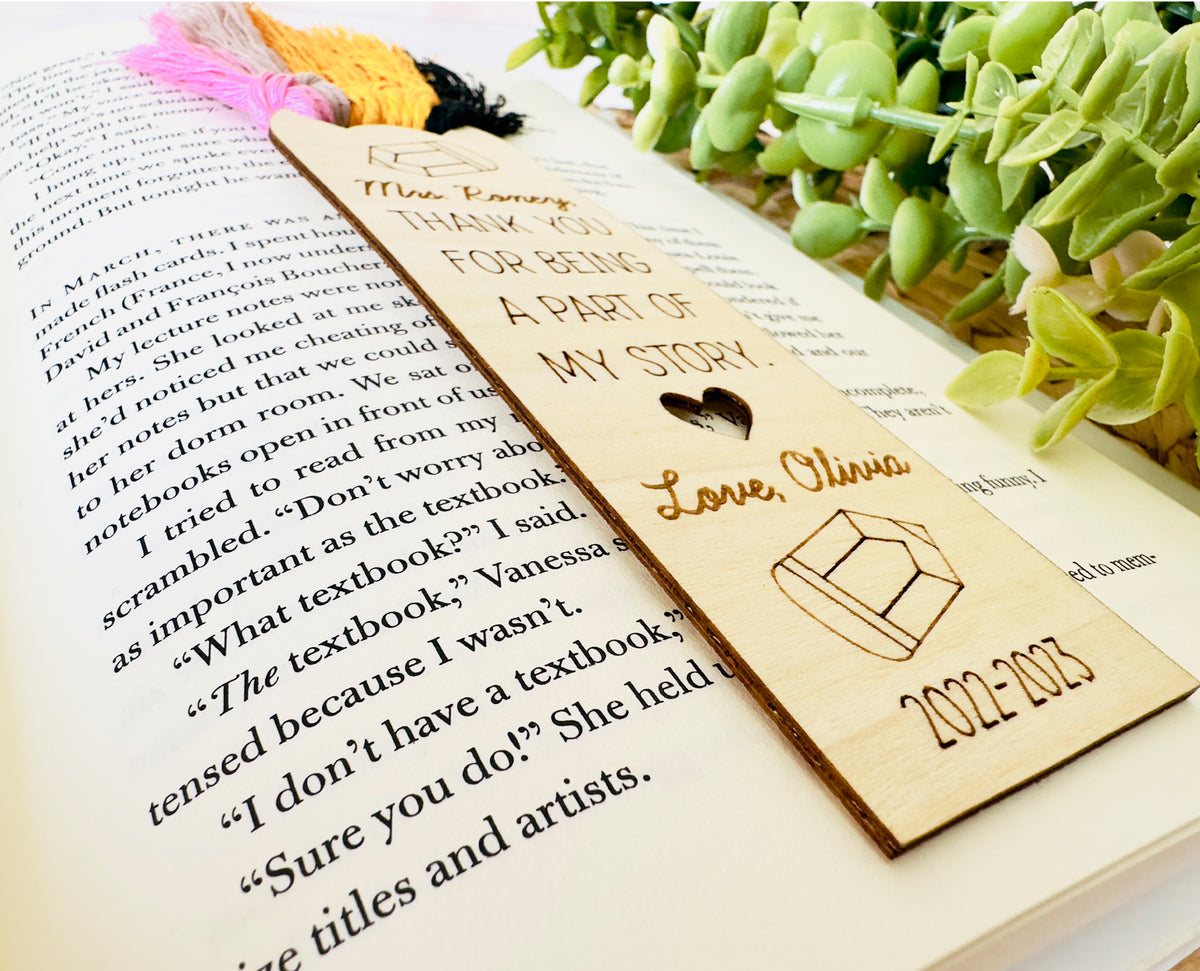 Mrs. Romey,
THANK YOU
FOR BEING
A PART OF
MY STORY.
Love, Olivia
2022-2023
"Okay," I said.
"Come on time if you
I hung up, not sure
the next time we spoke
this moment forgotten, the
ground. But tonight he wan
IN MARCH, THERE WAS A
made flash cards. I spent hou
French (France, I now under
David and François Boucher
My lecture notes were no
at hers. She looked at me sk
she'd noticed me cheating of
her notes but that we could s
to her dorm room. We sat o
notebooks open in front of us
I tried to read from my
scrambled. "Don't worry abo
as important as the textbook.
"What textbook?" I said.
"The textbook," Vanessa s
tensed because I wasn't.
"I don't have a textbook,"
"Sure you do!" She held u
ze titles and artists.
give me
lowed her
d and our
complete,
They aren't
ng funny, I
ed to mem-